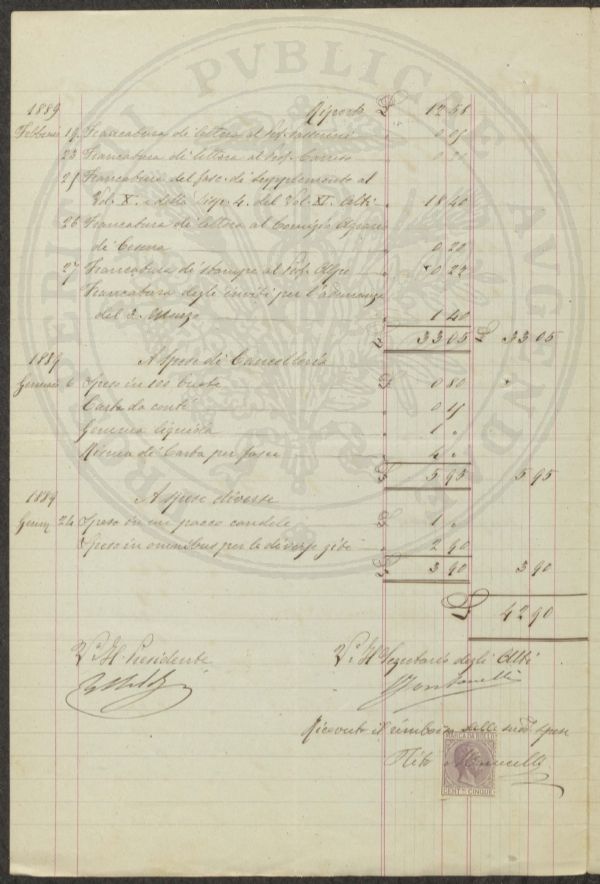 1889 Riporto £ 12.58
Febbraio 19 Francatura di lettera al Prof. " 0.05
23 Francatura di lettera al Prof. Caruso " 0.20
25 Francatura del fasc. di Supplemento al
Vol. X. e della Disp. 4. del Vol. XI. Atti " 18.40
26 Francatura di lettera al Comizio Agrario
di Cesena " 0.20
27 Francatura di stampe al Prof. Alpe " 0.22
Francatura degli inviti per l'adunanza
del 3. Marzo " 1.40
£ 33.05 £ 33.05
1889 A spese di Cancelleria
Gennaio 6 Speso in 100 buste £ 0.80
Carta da conti " 0.15
Gomma liquida " 1. "
Risma di Carta per fasce " 4. "
£ 5.95 5.95
1889 A spese diverse
Genn. 24 Speso in un pacco candele £ 1. "
Speso in omnibus per le diverse gite " 2.90
£ 3.90 3.90
£ 42.90
V. Il Presidente V. Il Segretario degli Atti
Ricevuto il rimborso delle sudd. spese
MARCA DA BOLLO
CENT. CINQUE
PVBLICAE
AVGENDAE